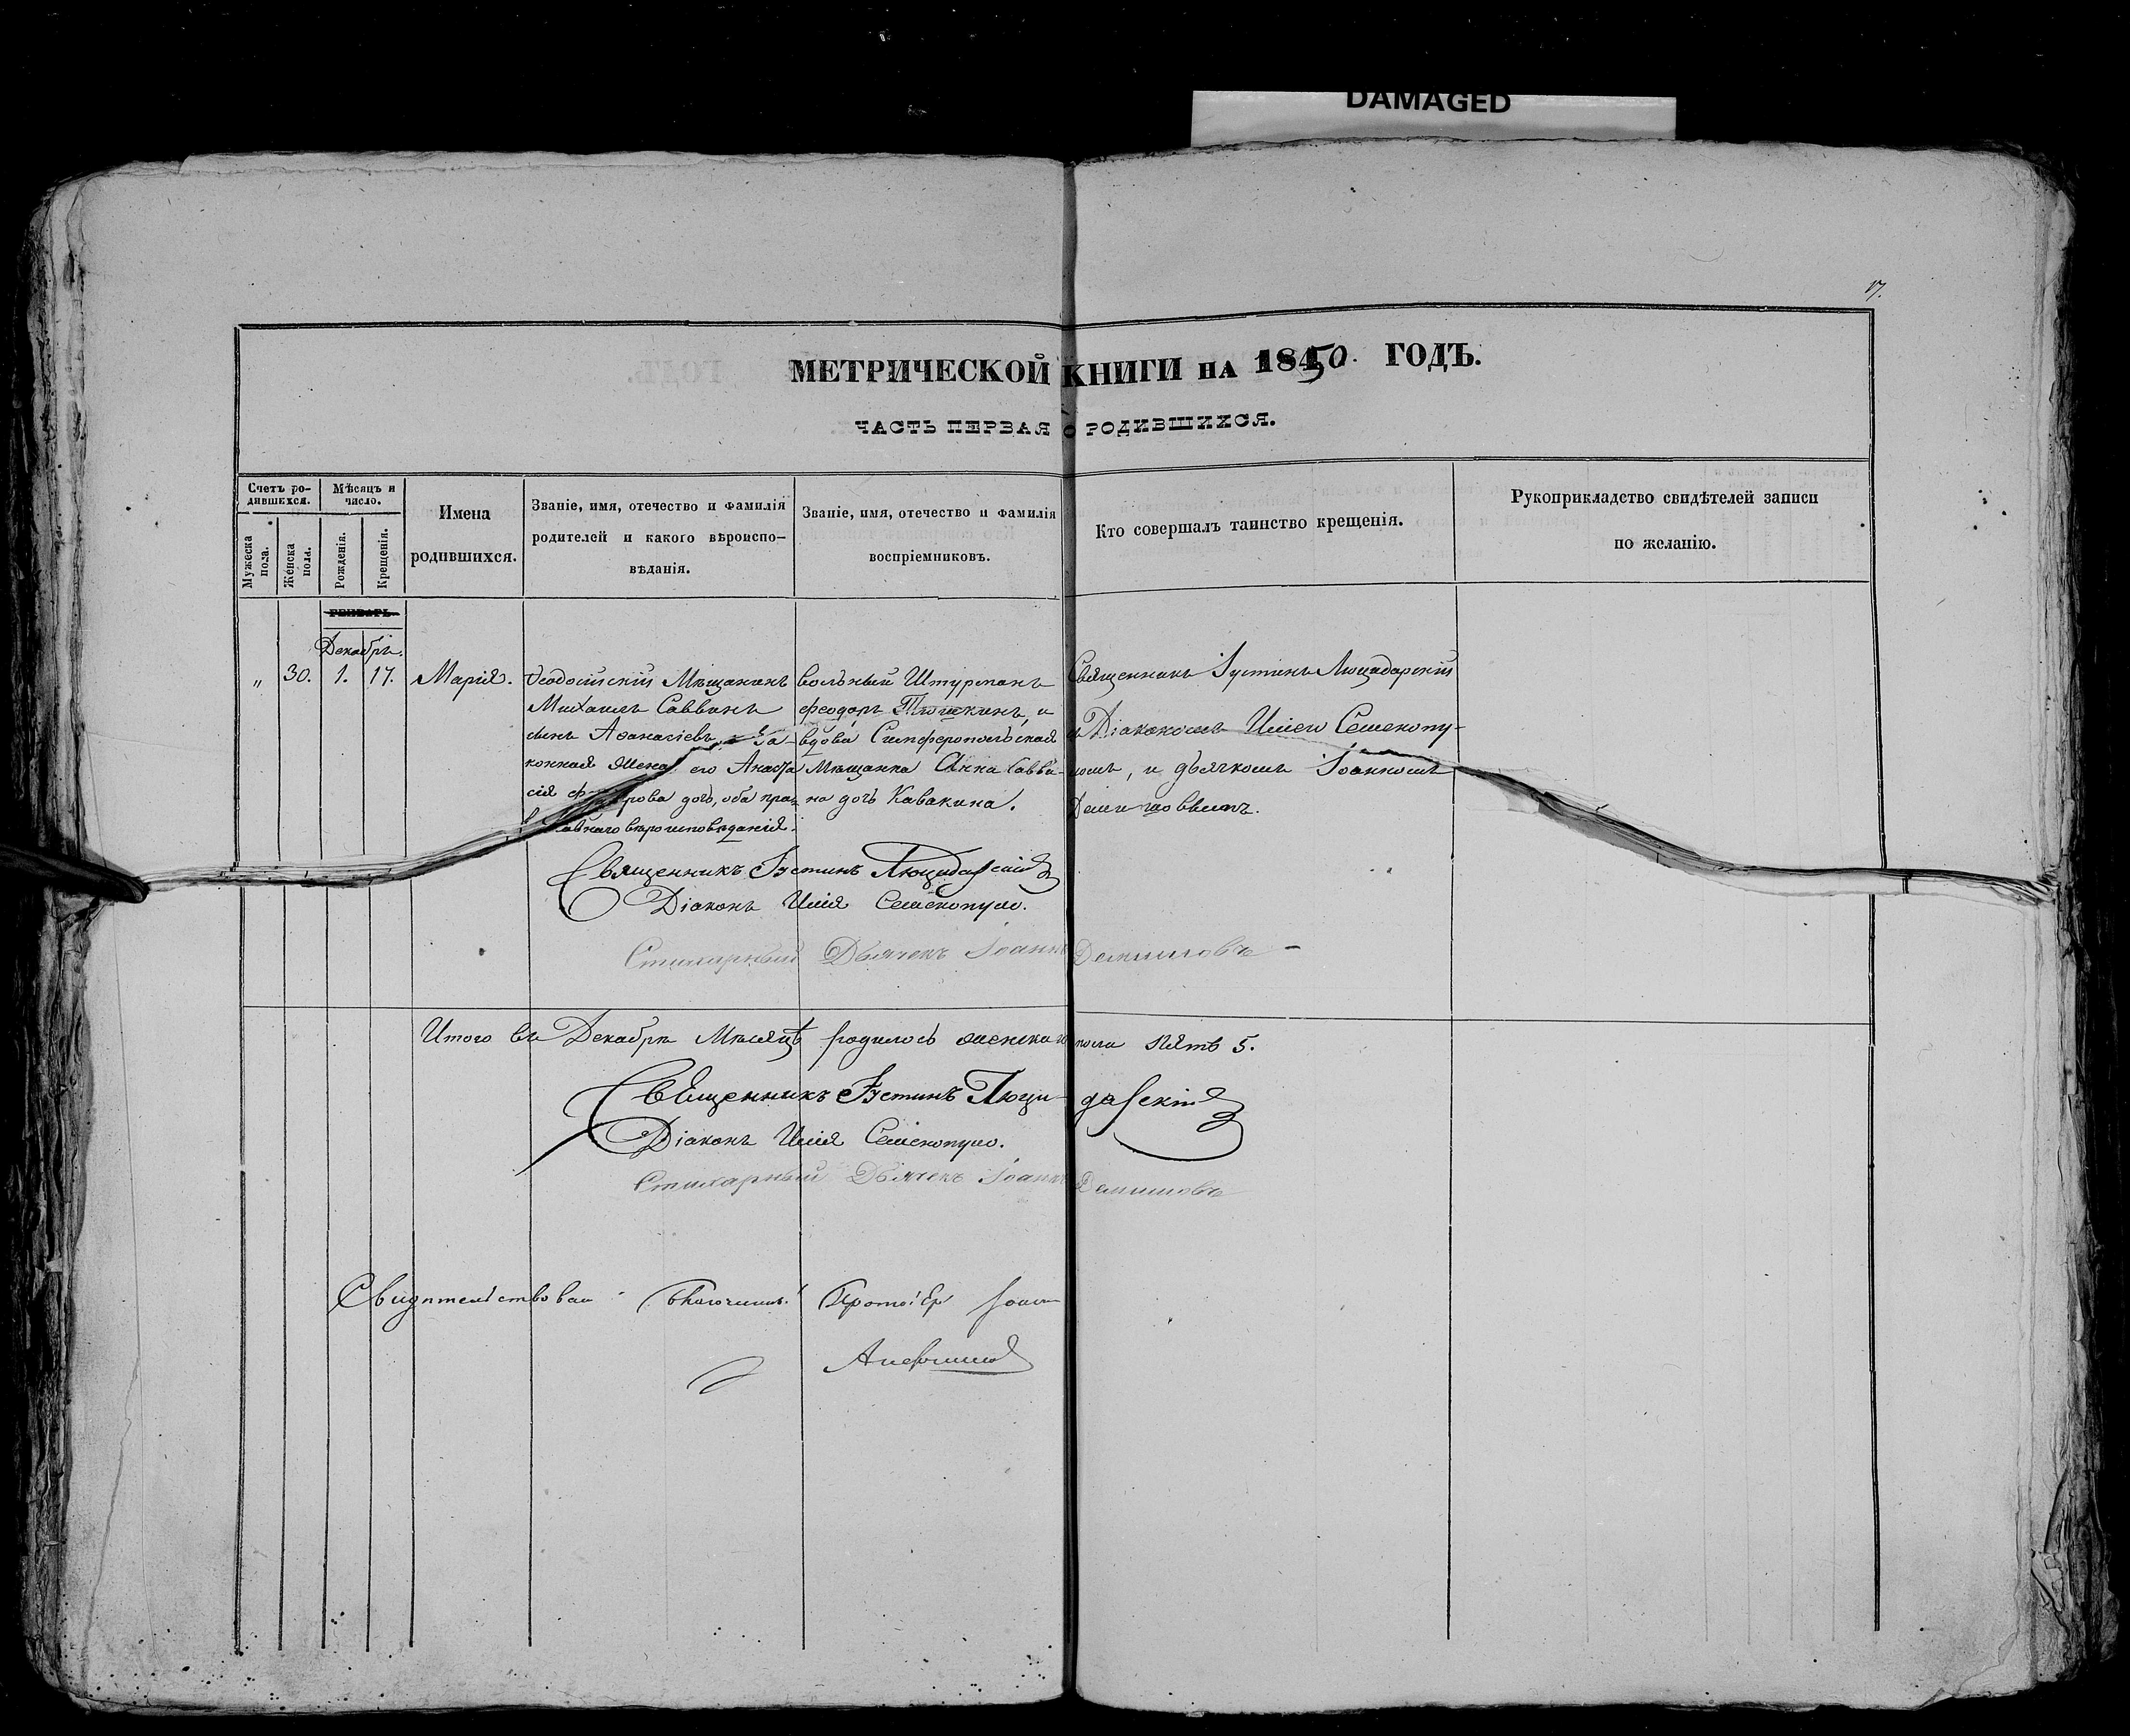 DAMAGED
17.
МЕТРИЧЕСКОЙ КНИГИ НА 1850. ГОДЪ.
ЧАСТЬ ПЕРВАЯ О РОДИВШИХСЯ.
Счетъ родившихся.
Мужеска пола.
Женска пола.
Мѣсяцъ и число.
Рожденія.
Крещенія.
Имена
родившихся.
Званіе, имя, отечество и фамилія
родителей и какого вѣроиспо-
вѣданія.
Званіе, имя, отечество и фамилія
воспріемниковъ.
Кто совершалъ таинство крещенія.
Рукоприкладство свидѣтелей записи
по желанію.
ГЕНВАРЬ.
Декабрь.
„ 30. 1. 17. Марія.
Ѳеодосійскій Мѣщанинъ
Михаилъ Саввинъ
сынъ Аѳанасіевъ, и За-
конная жена его Анаста
сія Ѳ рова дочь, оба пра-
в авнаго вѣроисповѣданія.
вольный Штурманъ
Феодоръ Тюшкинъ, и
вдова Симферопольская
Мѣщанка Анна Савви-
на дочь Кавакина.
Священникъ Іустинъ Люцидарскій
съ Діакономъ Иліею Семенопу-
ломъ, и дьячкомъ Іоанномъ
Демишовымъ.
Священникъ Іустинъ Люцидарскій
Діаконъ Илія Семенопуло.
Стихарный Дьячекъ Іоаннъ Демишовъ
Итого въ Декабрѣ Мѣсяцѣ родилось женска пола пять 5.
Священникъ Іустинъ Люцидарскій
Діаконъ Илія Семенопуло.
Стихарный Дьячекъ Іоаннъ Демишовъ
Свидѣтельствовалъ Благочинный Протоіер Іоанн